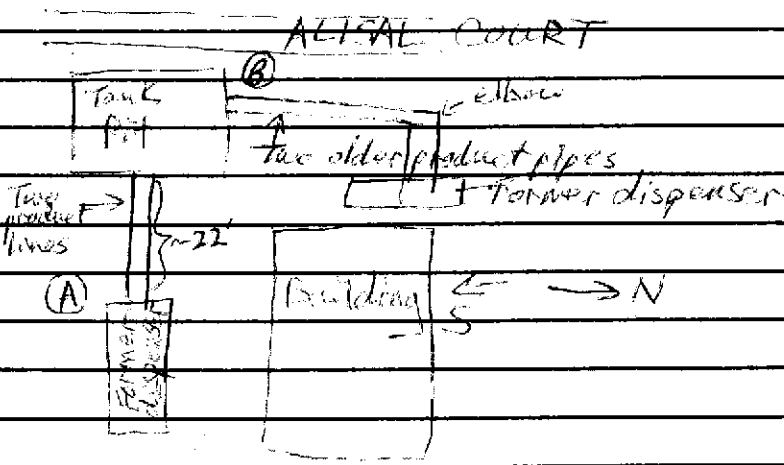 ALISAL COURT
B
Tank
Pit
elbow
two older product pipes
Former dispenser
Two
product
lines
~22'
A
Building
S
N
Former
dispenser